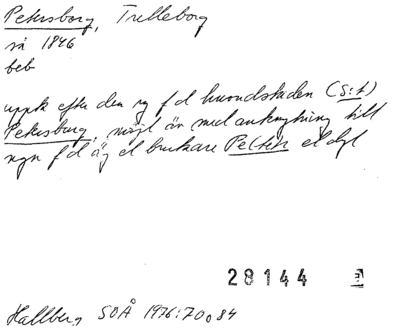 Petersborg, Trelleborg
så 1846
beb
uppk efter den ry f d huvudstaden (S:t)
Petersburg, möjl äv med anknytning till
ngn f d äg el brukare Petter el dyl
28144
Hallberg SOÅ 1976:70 o 84